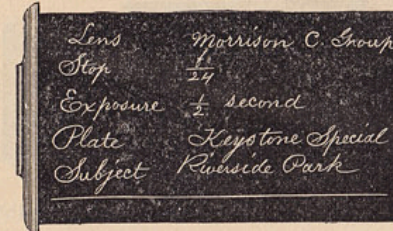 Lens Morrison C. Group
Stop 1/24
Exposure 1/2 second
Plate Keystone Special
Subject Riverside Park